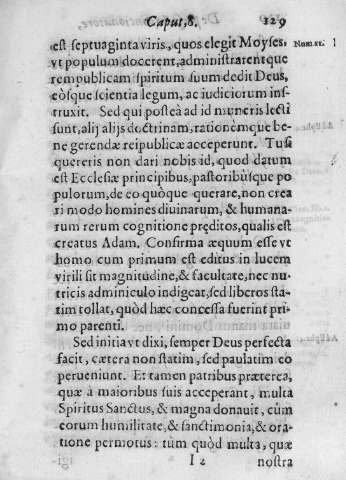 Caput, 8. 129
est septuaginta viris, quos elegit Moyses, Num. 11.
vt populum docerent, administrarentque
rempublicam spiritum suum dedit Deus,
eòsque scientia legum, ac iudiciorum ins-
truxit. Sed qui posteà ad id muneris lecti
sunt, alij alijs doctrinam, rationémque be-
ne gerendæ reipublicæ acceperunt. Tu si
quereris non dari nobis id, quod datum
est Ecclesiæ principibus, pastoribúsque po
pulorum, de eo quòque querare, non crea
ri modo homines diuinarum, & humana-
rum rerum cognitione pręditos, qualis est
creatus Adam. Confirma æquum esse vt
homo cum primum est editus in lucem
virili sit magnitudine, & facultate, nec nu-
tricis adminiculo indigeat, sed liberos sta-
tim tollat, quòd hæc concessa fuerint pri-
mo parenti.
Sed initia vt dixi, semper Deus perfecta
facit, cætera non statim, sed paulatim eo
perueniunt. Et tamen patribus præterea,
quæ à maioribus suis acceperant, multa
Spiritus Sanctus, & magna donauit, cùm
eorum humilitate, & sanctimonia, & ora-
tione permotus: tùm quòd multa, quæ
I 2 nostra